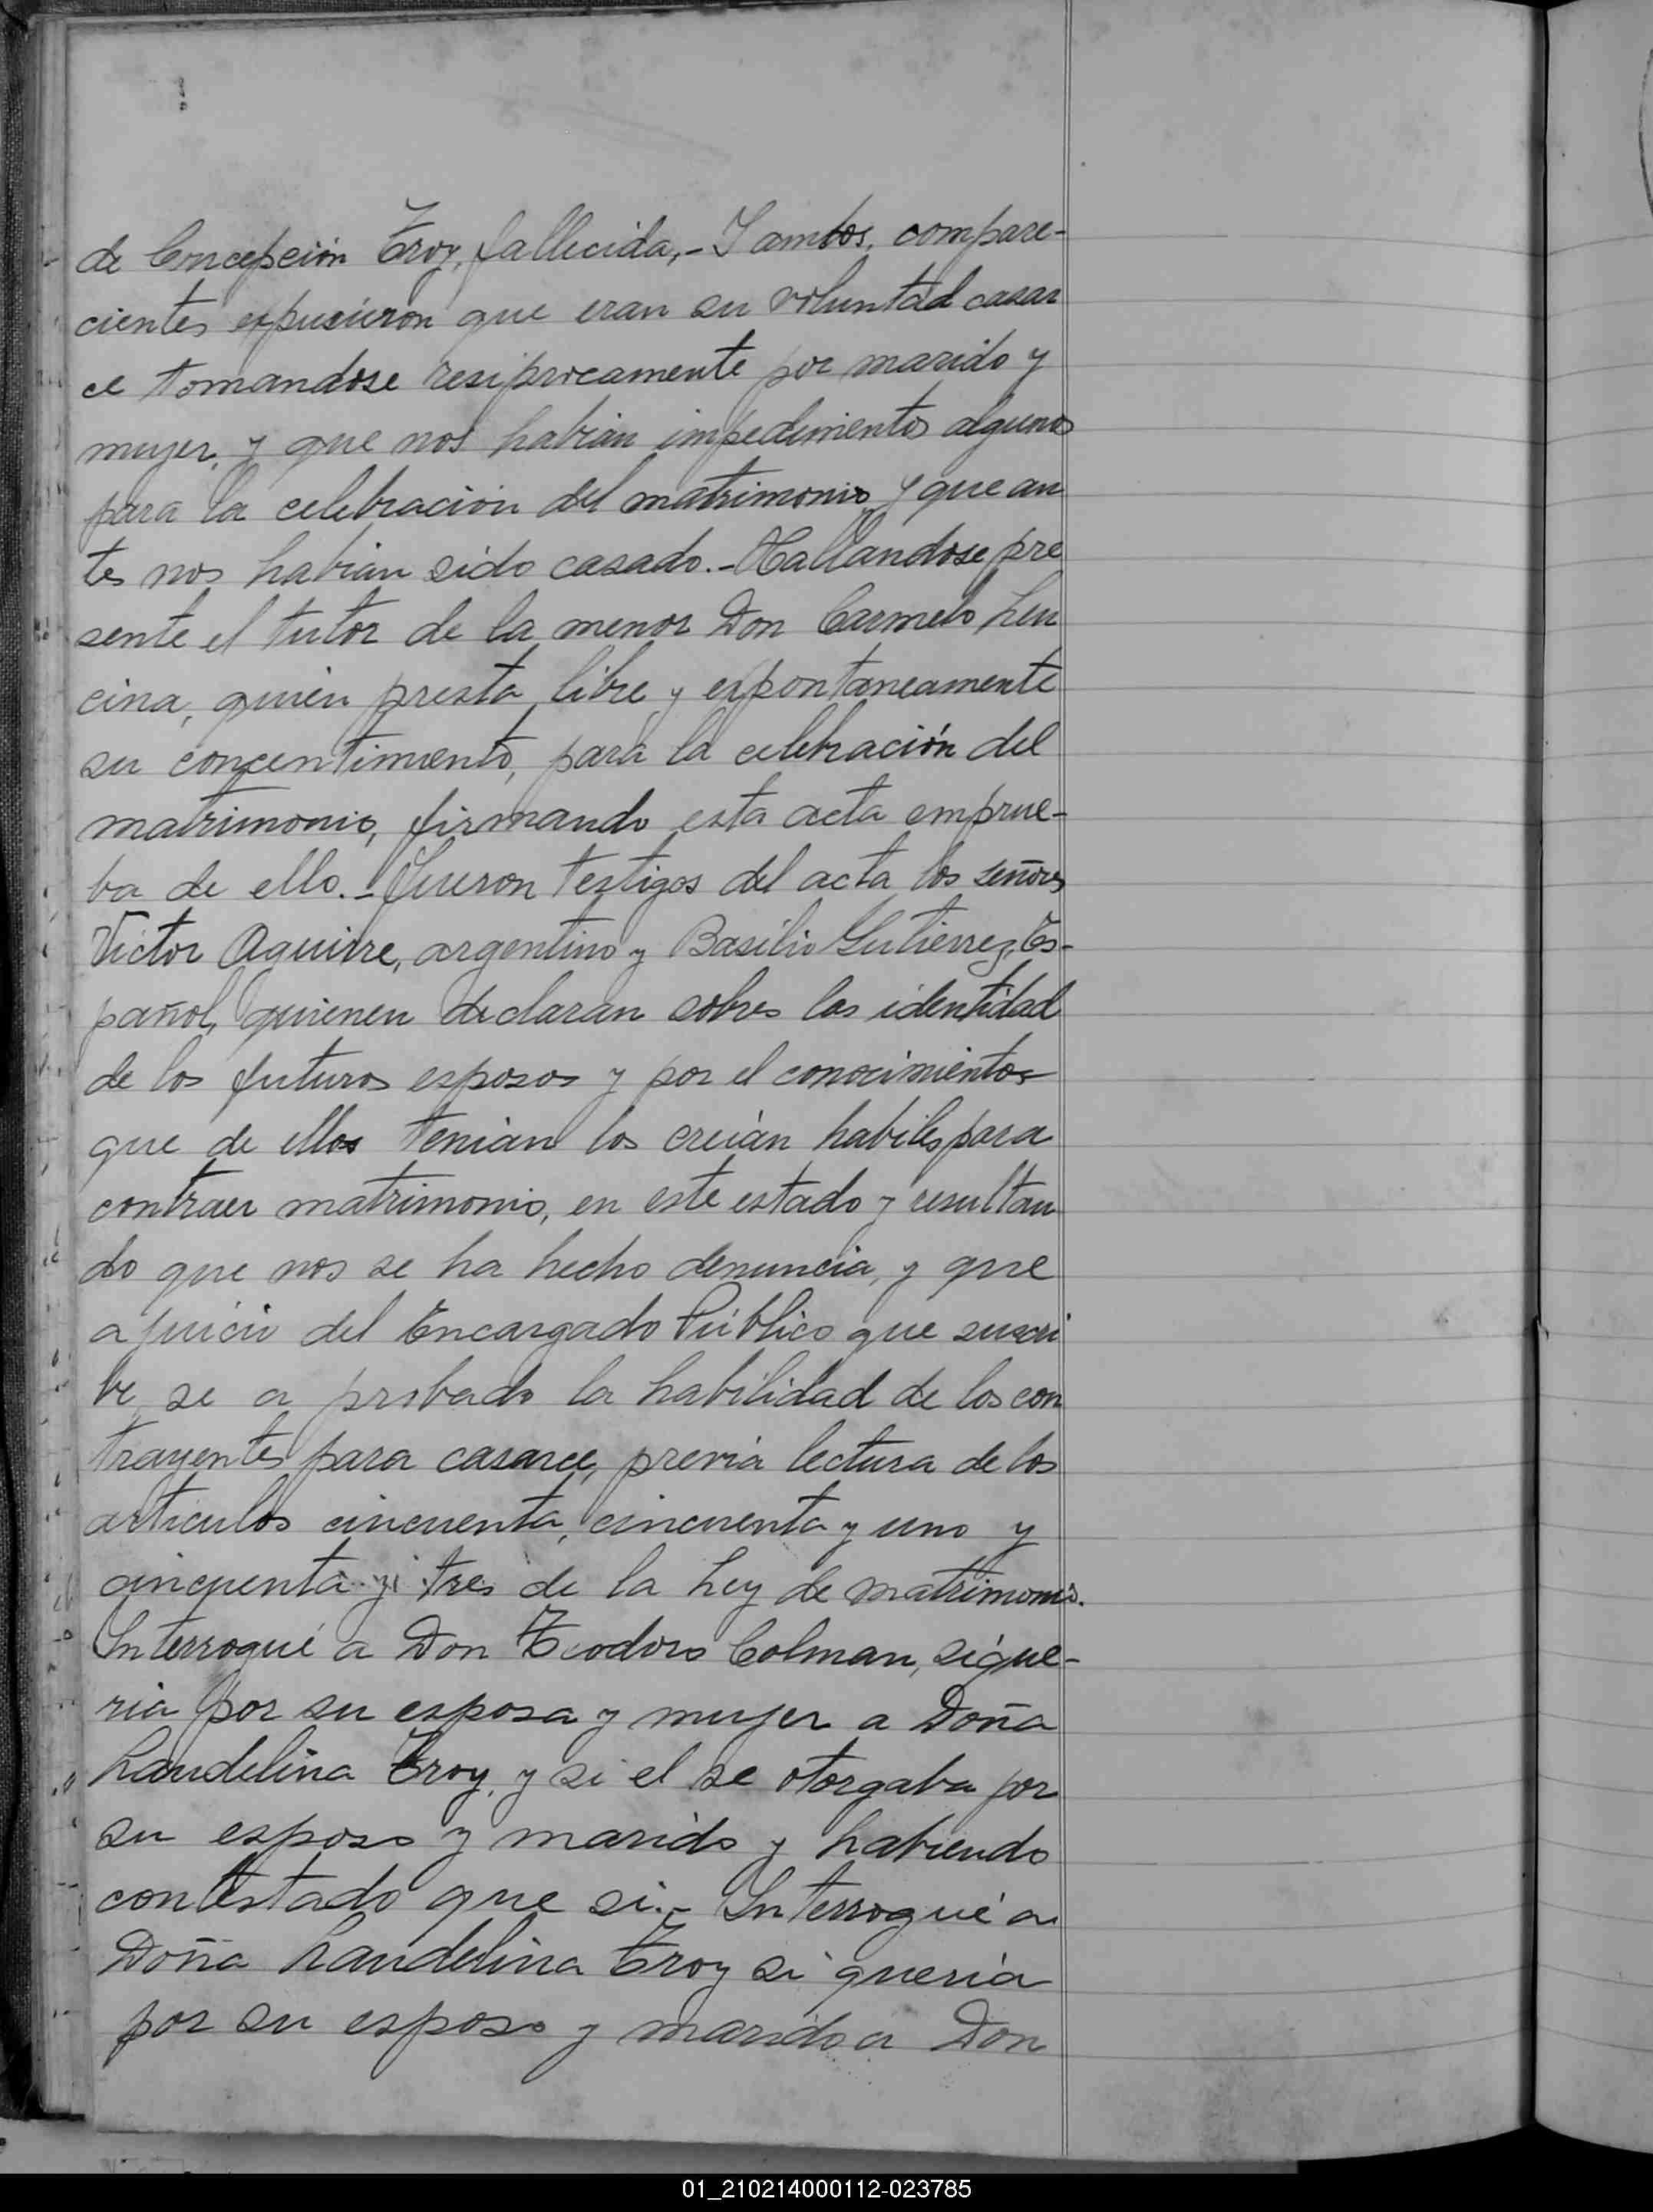 de Concepción Eroy, fallecida,- I ambos, compare-
cientes expusieron que eran su voluntad casar
ce tomandose resiprocamente por marido y
mujer, y que nos habian impedimentos algunos
para la celebración del matrimonio y que an
tes nos habian sido casado.- Hallandose pre
sente el tutor de la menor Don Carmelo Len
cina, quien presta libre y expontaneamente
su concentimiento, para la celebración del
matrimonio, firmando esta acta emprue-
ba de ello.- Fueron testigos del acta los señores
Victor Aguirre, argentino y Basilio Gutierrez, Es-
pañol, quienen declaran sobres las identidad
de los futuros esposos y por el conocimientos
que de ellos tenian los creían habiles para
contraer matrimonio, en este estado y resultan
do que nos se ha hecho denuncia, y que
a juicio del Encargado Público que suscri
be, se a probado la habilidad de los con
trayentes para casarce, previa lectura de los
articulos cincuenta, cincuenta y uno y
cincuenta y tres de la Ley de matrimonio.
Interrogué a Don Teodoro Colman, si que-
ria por su esposa y mujer a Doña
Landelina Eroy, y si el se otorgaba por
su esposo y marido y habiendo
contestado que si.- Interrogué a
Doña Landelina Eroy si queria
por su esposo y marido a Don
01_210214000112-023785